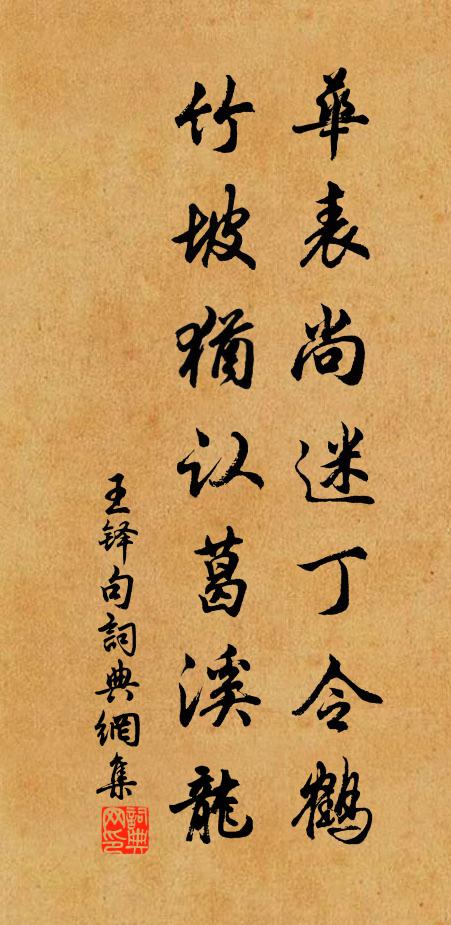 華表尚迷丁令鶴
竹坡猶认葛溪龍
王铎句詞典網集
詞典网印